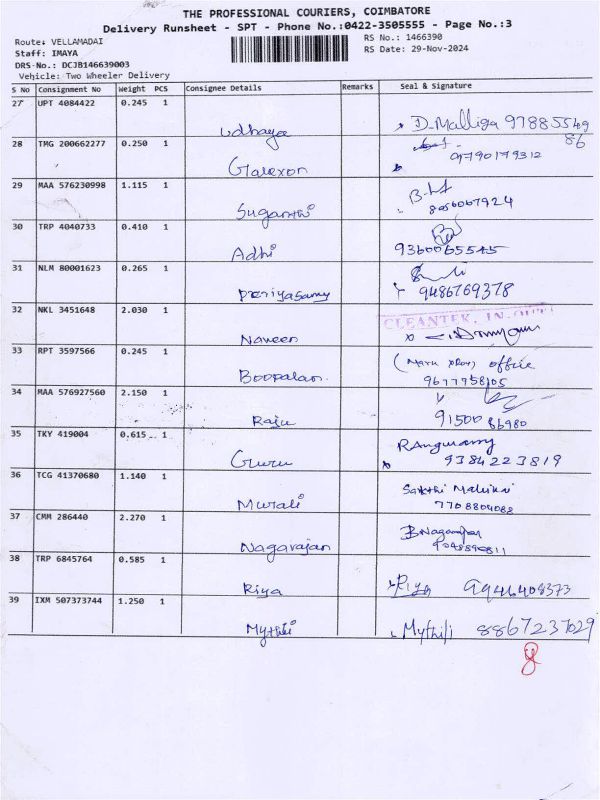 THE PROFESSIONAL COURIERS, COIMBATORE
Delivery Runsheet - SPT - Phone No.:0422-3505555 - Page No.:3
Route: VELLAMADAI
Staff: IMAYA
DRS-No.: DCJB146639003
Vehicle: Two Wheeler Delivery
RS No.: 1466390
RS Date: 29-Nov-2024
S No Consignment No Weight PCS Consignee Details Remarks Seal & Signature
27 UPT 4084422 0.245 1
Udhaya D.Malliga 9788554986
28 TMG 200662277 0.250 1
Galexon 9790179312
29 MAA 576230998 1.115 1
Suganthi 8056067924
30 TRP 4040733 0.410 1
Adhi 9360065545
31 NLM 80001623 0.265 1
Periyasamy 9486769378
32 NKL 3451648 2.030 1
Naveen CLEANTEK
33 RPT 3597566 0.245 1
Boopalan office 9677958105
34 MAA 576927560 2.150 1
Raju 9150086980
35 TKY 419004 0.615 1
Guru 9384223819
36 TCG 41370680 1.140 1
Murali Sakthi 7708804088
37 CMM 286440 2.270 1
Nagarajan
38 TRP 6845764 0.585 1
Riya Riya 9946408373
39 IXM 507373744 1.250 1
Mythili Mythili 8867237029